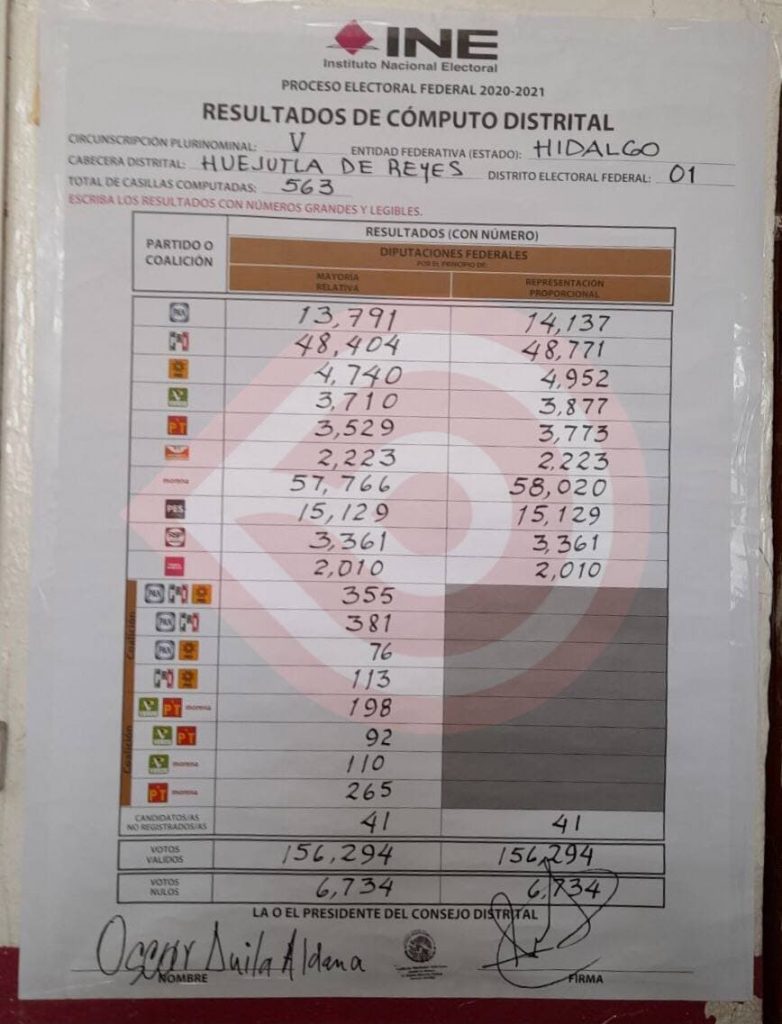 INE
Instituto Nacional Electoral
PROCESO ELECTORAL FEDERAL 2020-2021
RESULTADOS DE CÓMPUTO DISTRITAL
CIRCUNSCRIPCIÓN PLURINOMINAL: V ENTIDAD FEDERATIVA (ESTADO): HIDALGO
CABECERA DISTRITAL: HUEJUTLA DE REYES DISTRITO ELECTORAL FEDERAL: 01
TOTAL DE CASILLAS COMPUTADAS: 563
ESCRIBA LOS RESULTADOS CON NÚMEROS GRANDES Y LEGIBLES.
PARTIDO O COALICIÓN
RESULTADOS (CON NÚMERO)
DIPUTACIONES FEDERALES
POR EL PRINCIPIO DE:
MAYORÍA RELATIVA
REPRESENTACIÓN PROPORCIONAL
PAN 13,791 14,137
PRI 48,404 48,771
4,740 4,952
VERDE 3,710 3,877
PT 3,529 3,773
2,223 2,223
morena 57,766 58,020
PES 15,129 15,129
RSP 3,361 3,361
2,010 2,010
Coalición
PAN PRI 355
PAN PRI 381
PAN 76
PRI 113
Coalición
VERDE PT morena 198
VERDE PT 92
VERDE morena 110
PT morena 265
CANDIDATOS/AS NO REGISTRADOS/AS 41 41
VOTOS VÁLIDOS 156,294 156,294
VOTOS NULOS 6,734 6,734
LA O EL PRESIDENTE DEL CONSEJO DISTRITAL
Oscar Avila Aldana
NOMBRE
FIRMA